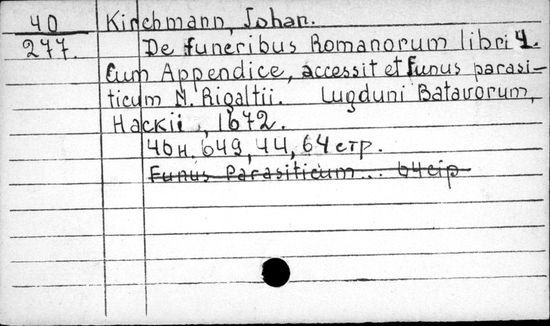 40 Kirchmann, Johan.
277. De funeribus Romanorum libri 4.
Cum Appendice, accessit et funus parasi-
ticum N. Rigaltii. Lugduni Batavorum,
Hackii, 1672.
40н, 649, 44, 64 стр.
Funus Parasiticum... 64 cip